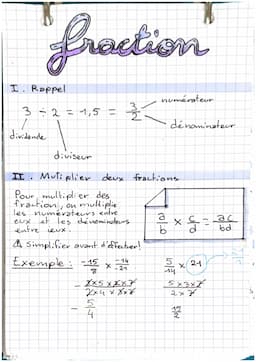 fraction
I. Rappel
3 ÷ 2 = 1,5 = 3/2
numérateur
dénominateur
dividende
diviseur
II. Mutiplier deux fractions
Pour multiplier des
fractions, on multiplie
les numérateurs entre
eux et les dénominateurs
entre eux.
a/b × c/d = ac/bd
⚠ Simplifier avant d'effectuer!
Exemple: -15/8 × -14/-21
- 3×5×2×7 / 2×4×3×7
- 5/4
5/14 × 21
5×3×7 / 2×7
15/2